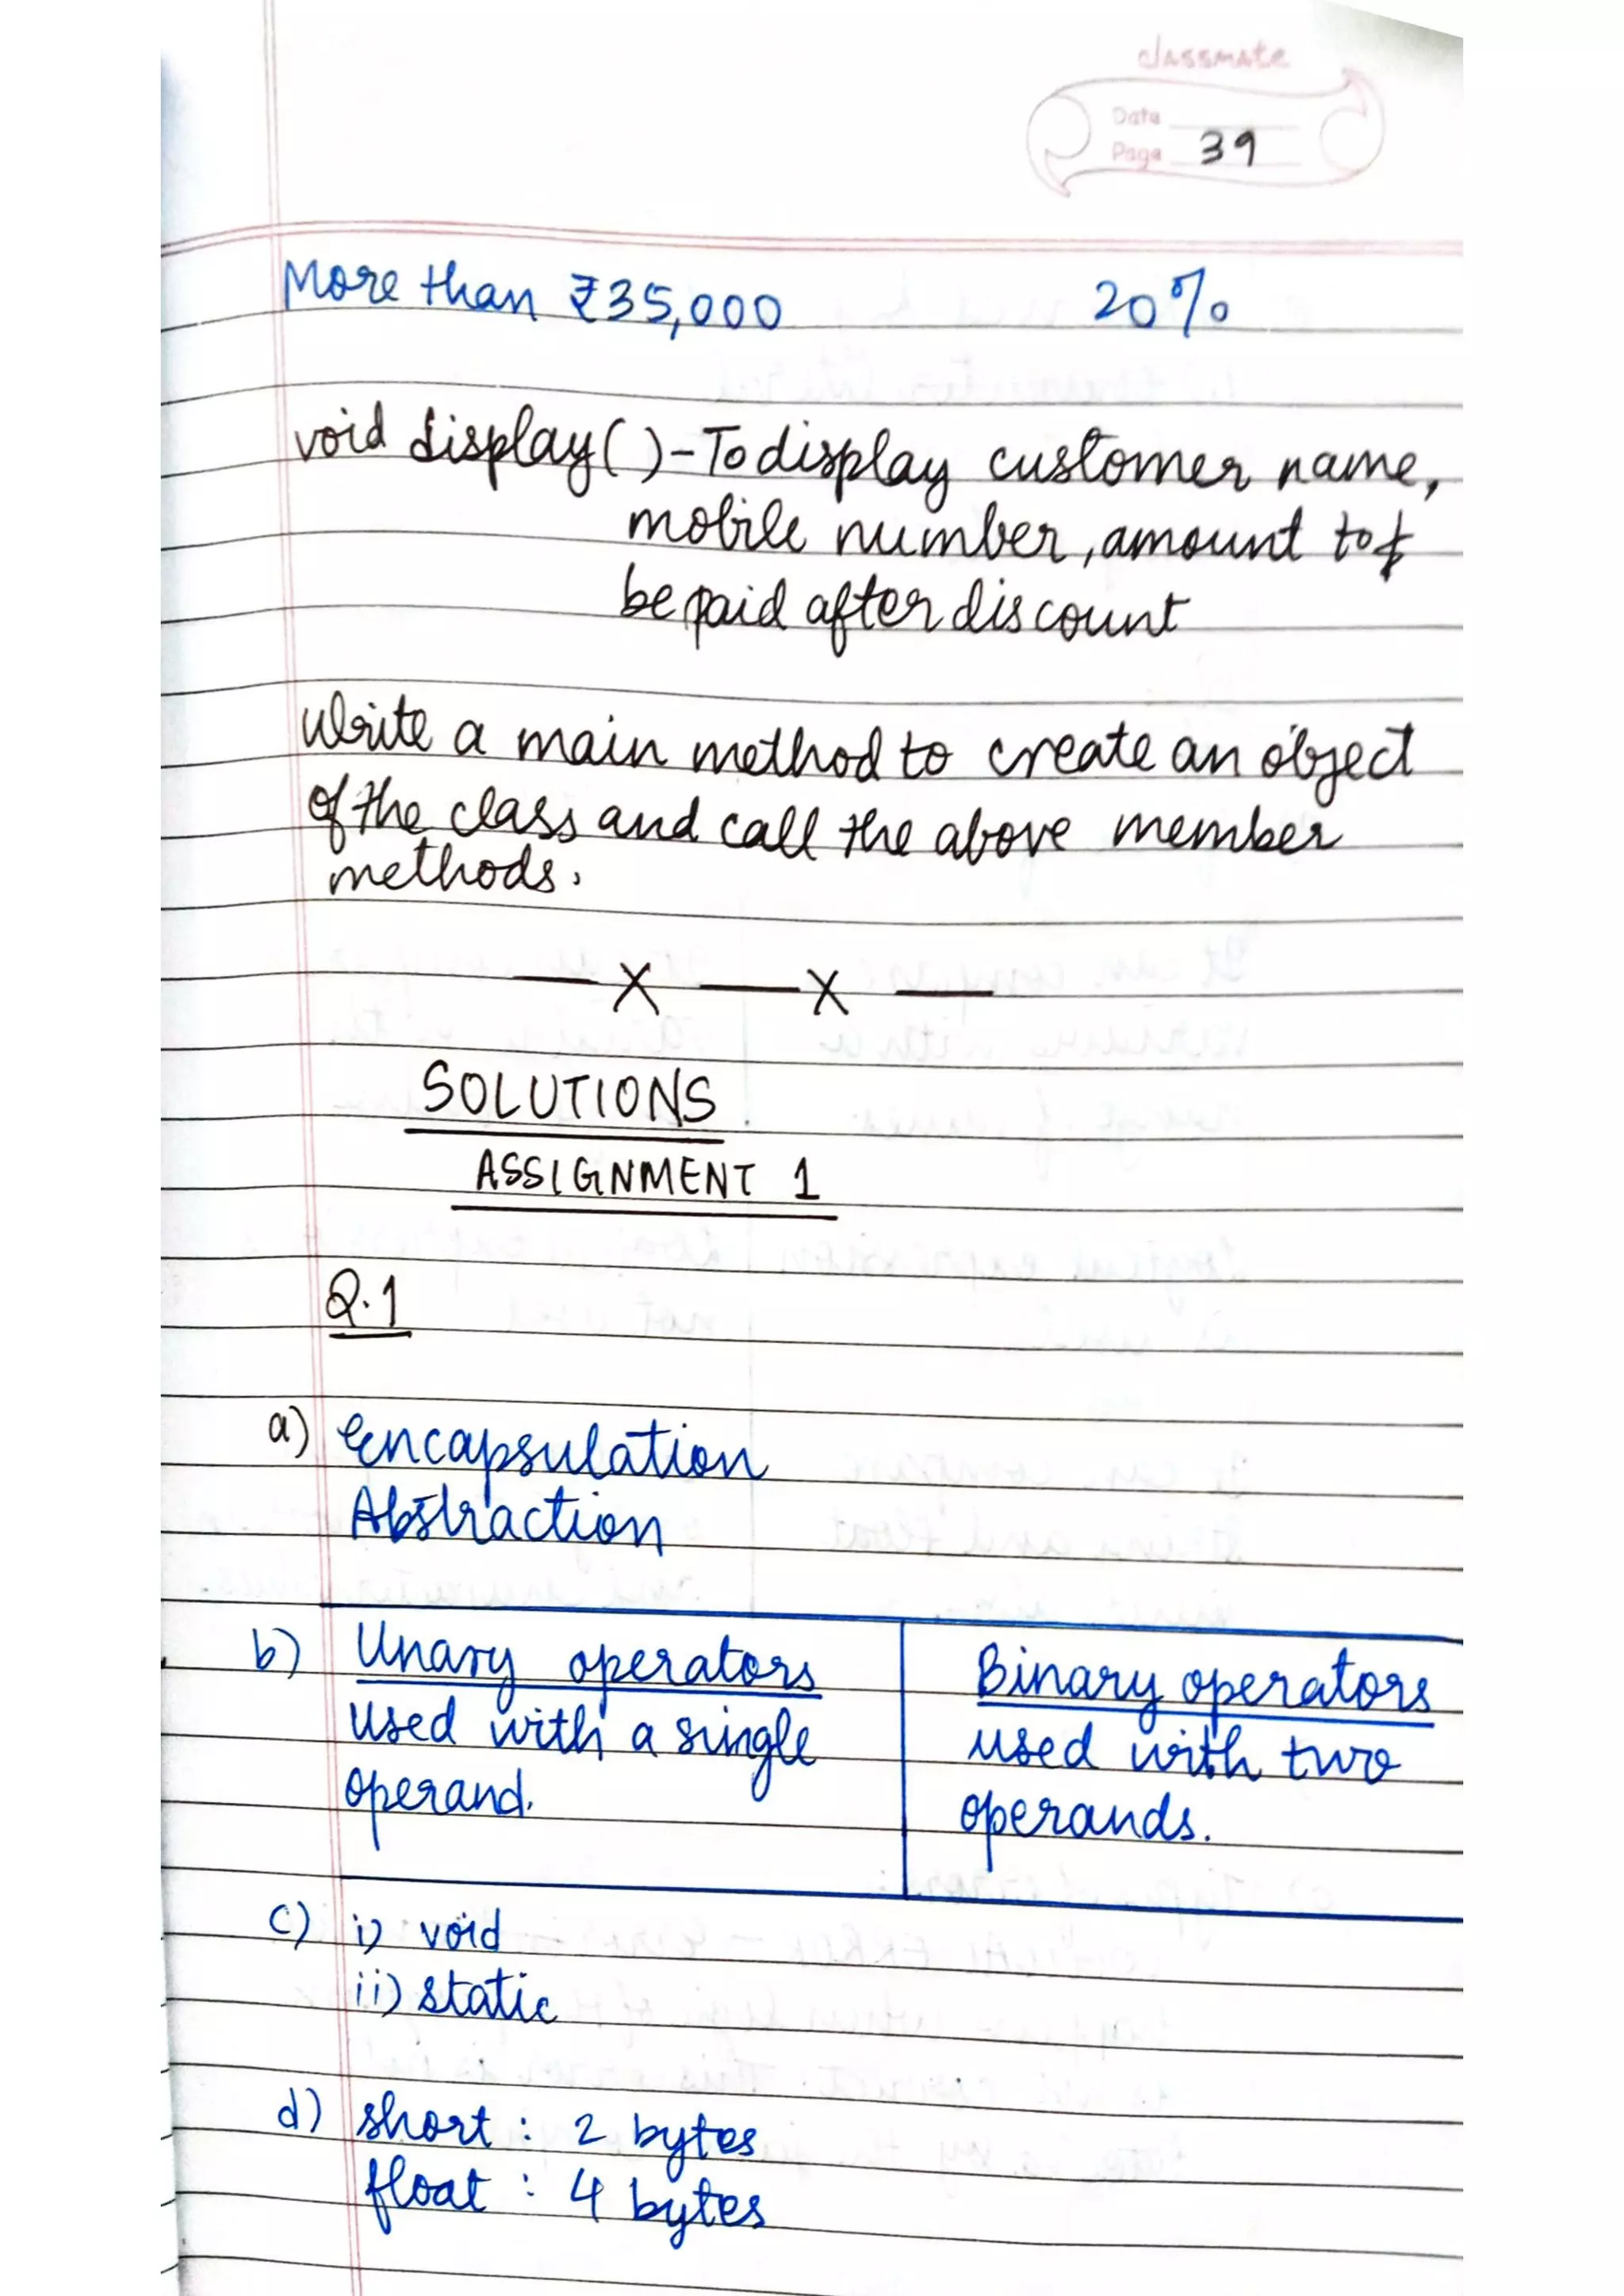 classmate
Date
Page 39
More than ₹35,000 20%
void display( ) - To display customer name,
mobile number, amount to
be paid after discount
Write a main method to create an object
of the class and call the above member
methods.
— X — X —
SOLUTIONS
ASSIGNMENT 1
Q.1
a) Encapsulation
Abstraction
b) Unary operators Binary operators
used with a single used with two
operand. operands.
c) i) void
ii) static
d) short : 2 bytes
float : 4 bytes